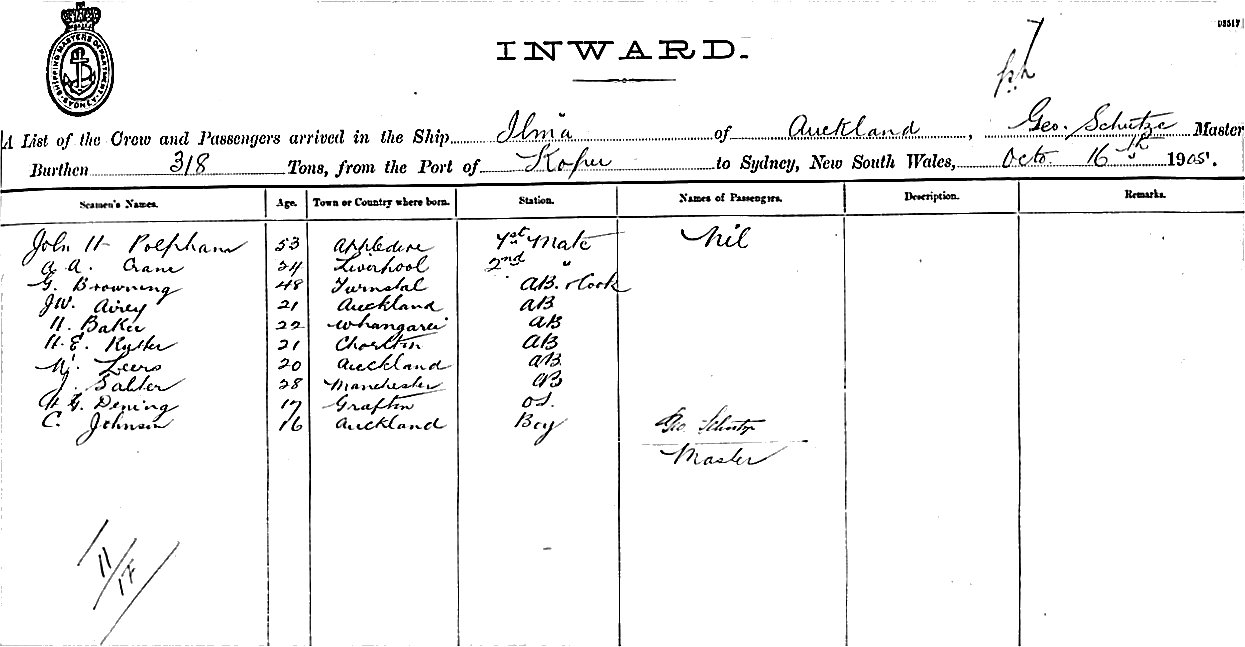 SHIPPING MASTERS DEPARTMENT SYDNEY
INWARD.
A List of the Crew and Passengers arrived in the Ship Ilma of Auckland, Geo. Schutze Master
Burthen 318 Tons, from the Port of to Sydney, New South Wales, Octo. 16th 1905.
Seamen's Names. Age. Town or Country where born. Station. Names of Passengers. Description. Remarks.
John H 53 Appledore 1st Mate Nil
A A. Crane 24 Liverpool 2nd "
G. Browning 48 Tunstal AB. & Cook
JW. Airey 21 Auckland AB
H. Baker 22 Whangarei AB
H. E. 21 Chorlton AB
Leers 20 Auckland AB
J. Salter 28 Manchester AB
H G. Dening 17 Grafton O.S.
C. Johnson 16 Auckland Boy Geo. Schutze
Master
11/